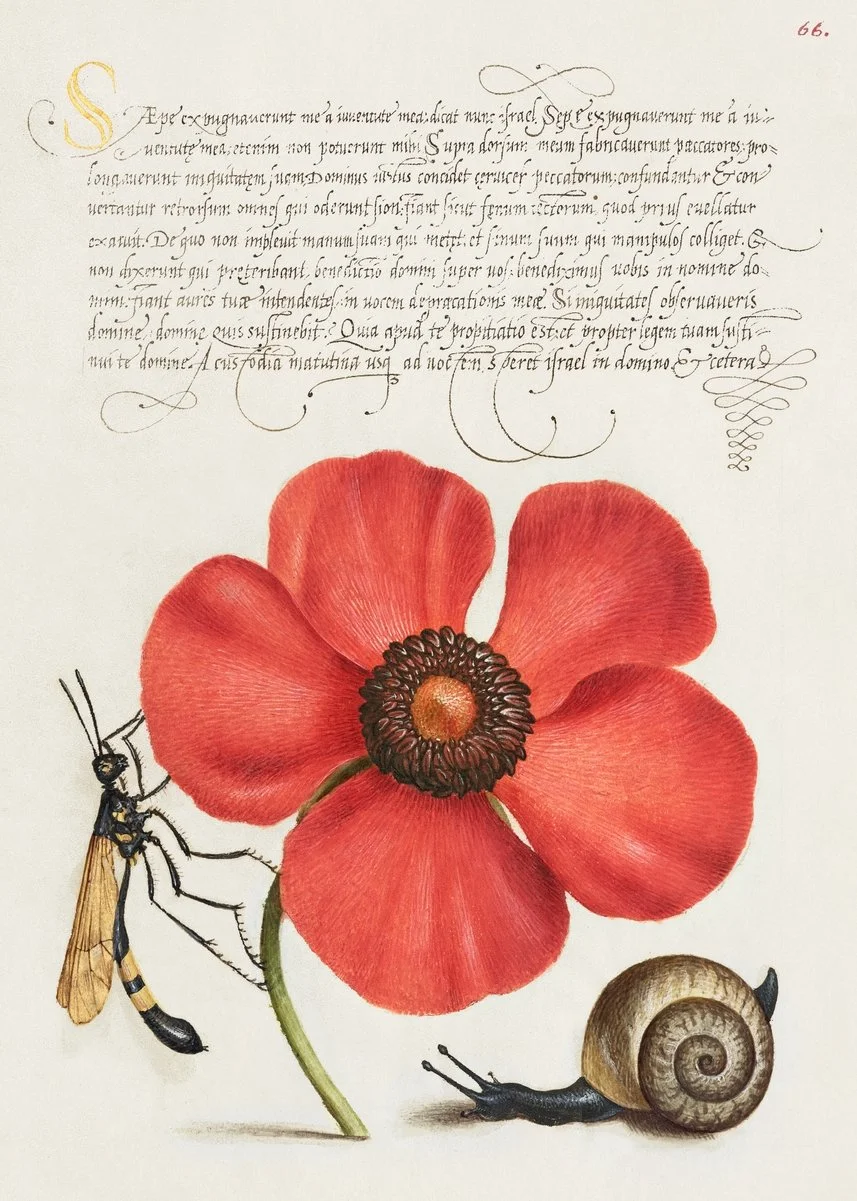 66.
SÆpe expugnauerunt me a iuuentute mea: dicat nunc israel. Sepe expugnauerunt me a iu-
uentute mea, etenim non potuerunt mihi Supra dorsum meum fabricauerunt peccatores: pro-
longauerunt iniquitatem suam Dominus iustus concidet ceruices peccatorum: confundantur & con
uertantur retrorsum omnes qui oderunt sion, fiant sicut fenum tectorum, quod prius euellatur
exaruit. De quo non impleuit manum suam qui metet: et sinum suum qui manipulos colliget. Et
non dixerunt qui preteribant, benedictio domini super vos: benediximus uobis in nomine do-
mini. fiant aures tuæ intendentes: in vocem deprecationis meæ. Si iniquitates obseruaueris
domine, domine quis sustinebit. Quia apud te propitiatio est: et propter legem tuam susti-
nui te domine. A custodia matutina usq ad noctem, speret israel in domino & cetera